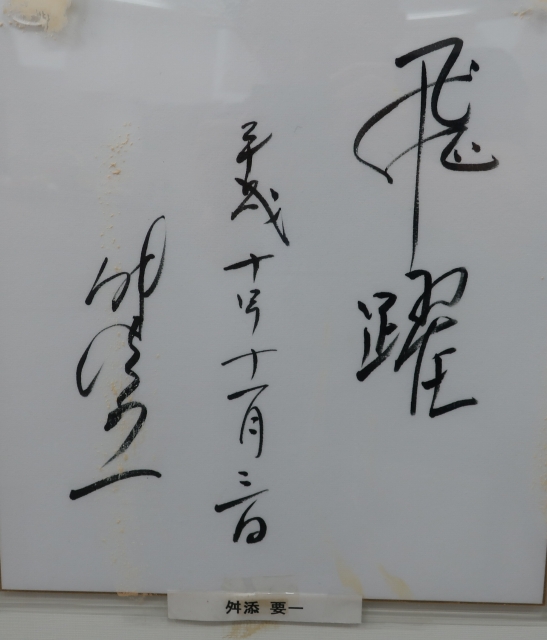 飛躍
平成十年十一月三日
舛添要一
舛添 要一